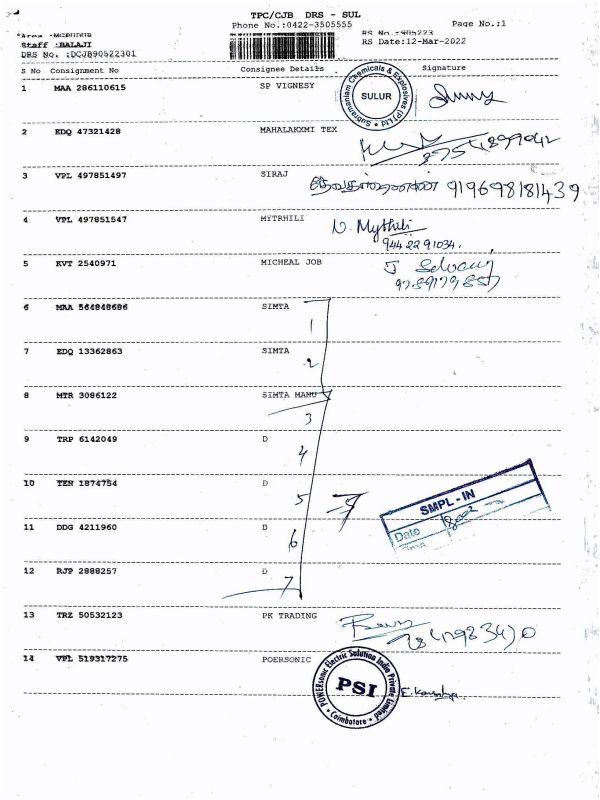 TPC/CJB DRS - SUL
Phone No.:0422-3505555 Page No.:1
Staff :BALAJI RS Date:12-Mar-2022
DRS No. :DCJB90522301
S No Consignment No Consignee Details Signature
1 MAA 286110615 SP VIGNESY
Subramaniam Chemicals & Explosives (P) Ltd
SULUR
2 EDQ 47321428 MAHALAKXMI TEX
3 VPL 497851497 SIRAJ 919698181439
4 VPL 497851547 MYTRHILI N. Mythili
944 22 91034.
5 KVT 2540971 MICHEAL JOB J
6 MAA 564848686 SIMTA
1
7 EDQ 13362863 SIMTA
2
8 MTR 3086122 SIMTA MANU
3
9 TRP 6142049 D
4
10 TEN 1874754 D
5
SMPL - IN
Date
11 DDG 4211960 D
6
12 RJP 2888257 D
7
13 TRZ 50532123 PK TRADING
14 VPL 519317275 POERSONIC
POWERsonic Electric Solution India Private Limited
PSI
Coimbatore